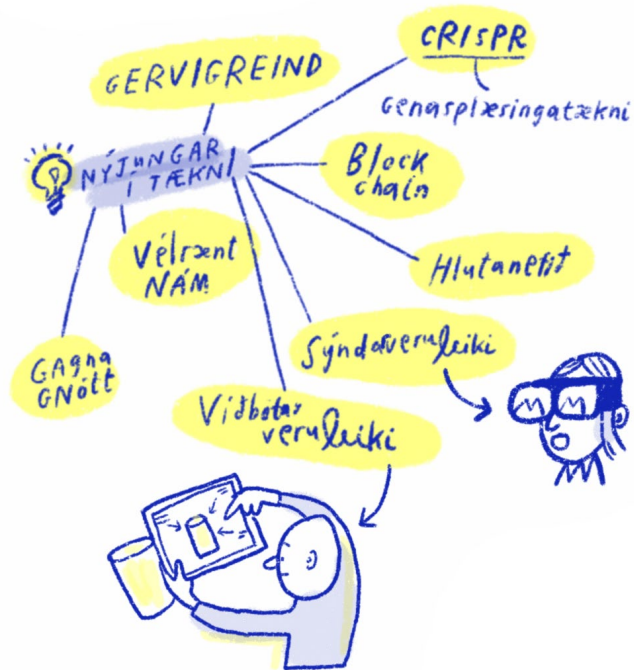 GERVIGREIND
CRISPR
Genasplæsingatækni
NÝJUNGAR
Í TÆKNI
Block
chain
Vélrænt
NÁM
Hlutanetit
Sýndarveruleiki
GAgna
GNÓTT
Viðbótar
veruleiki